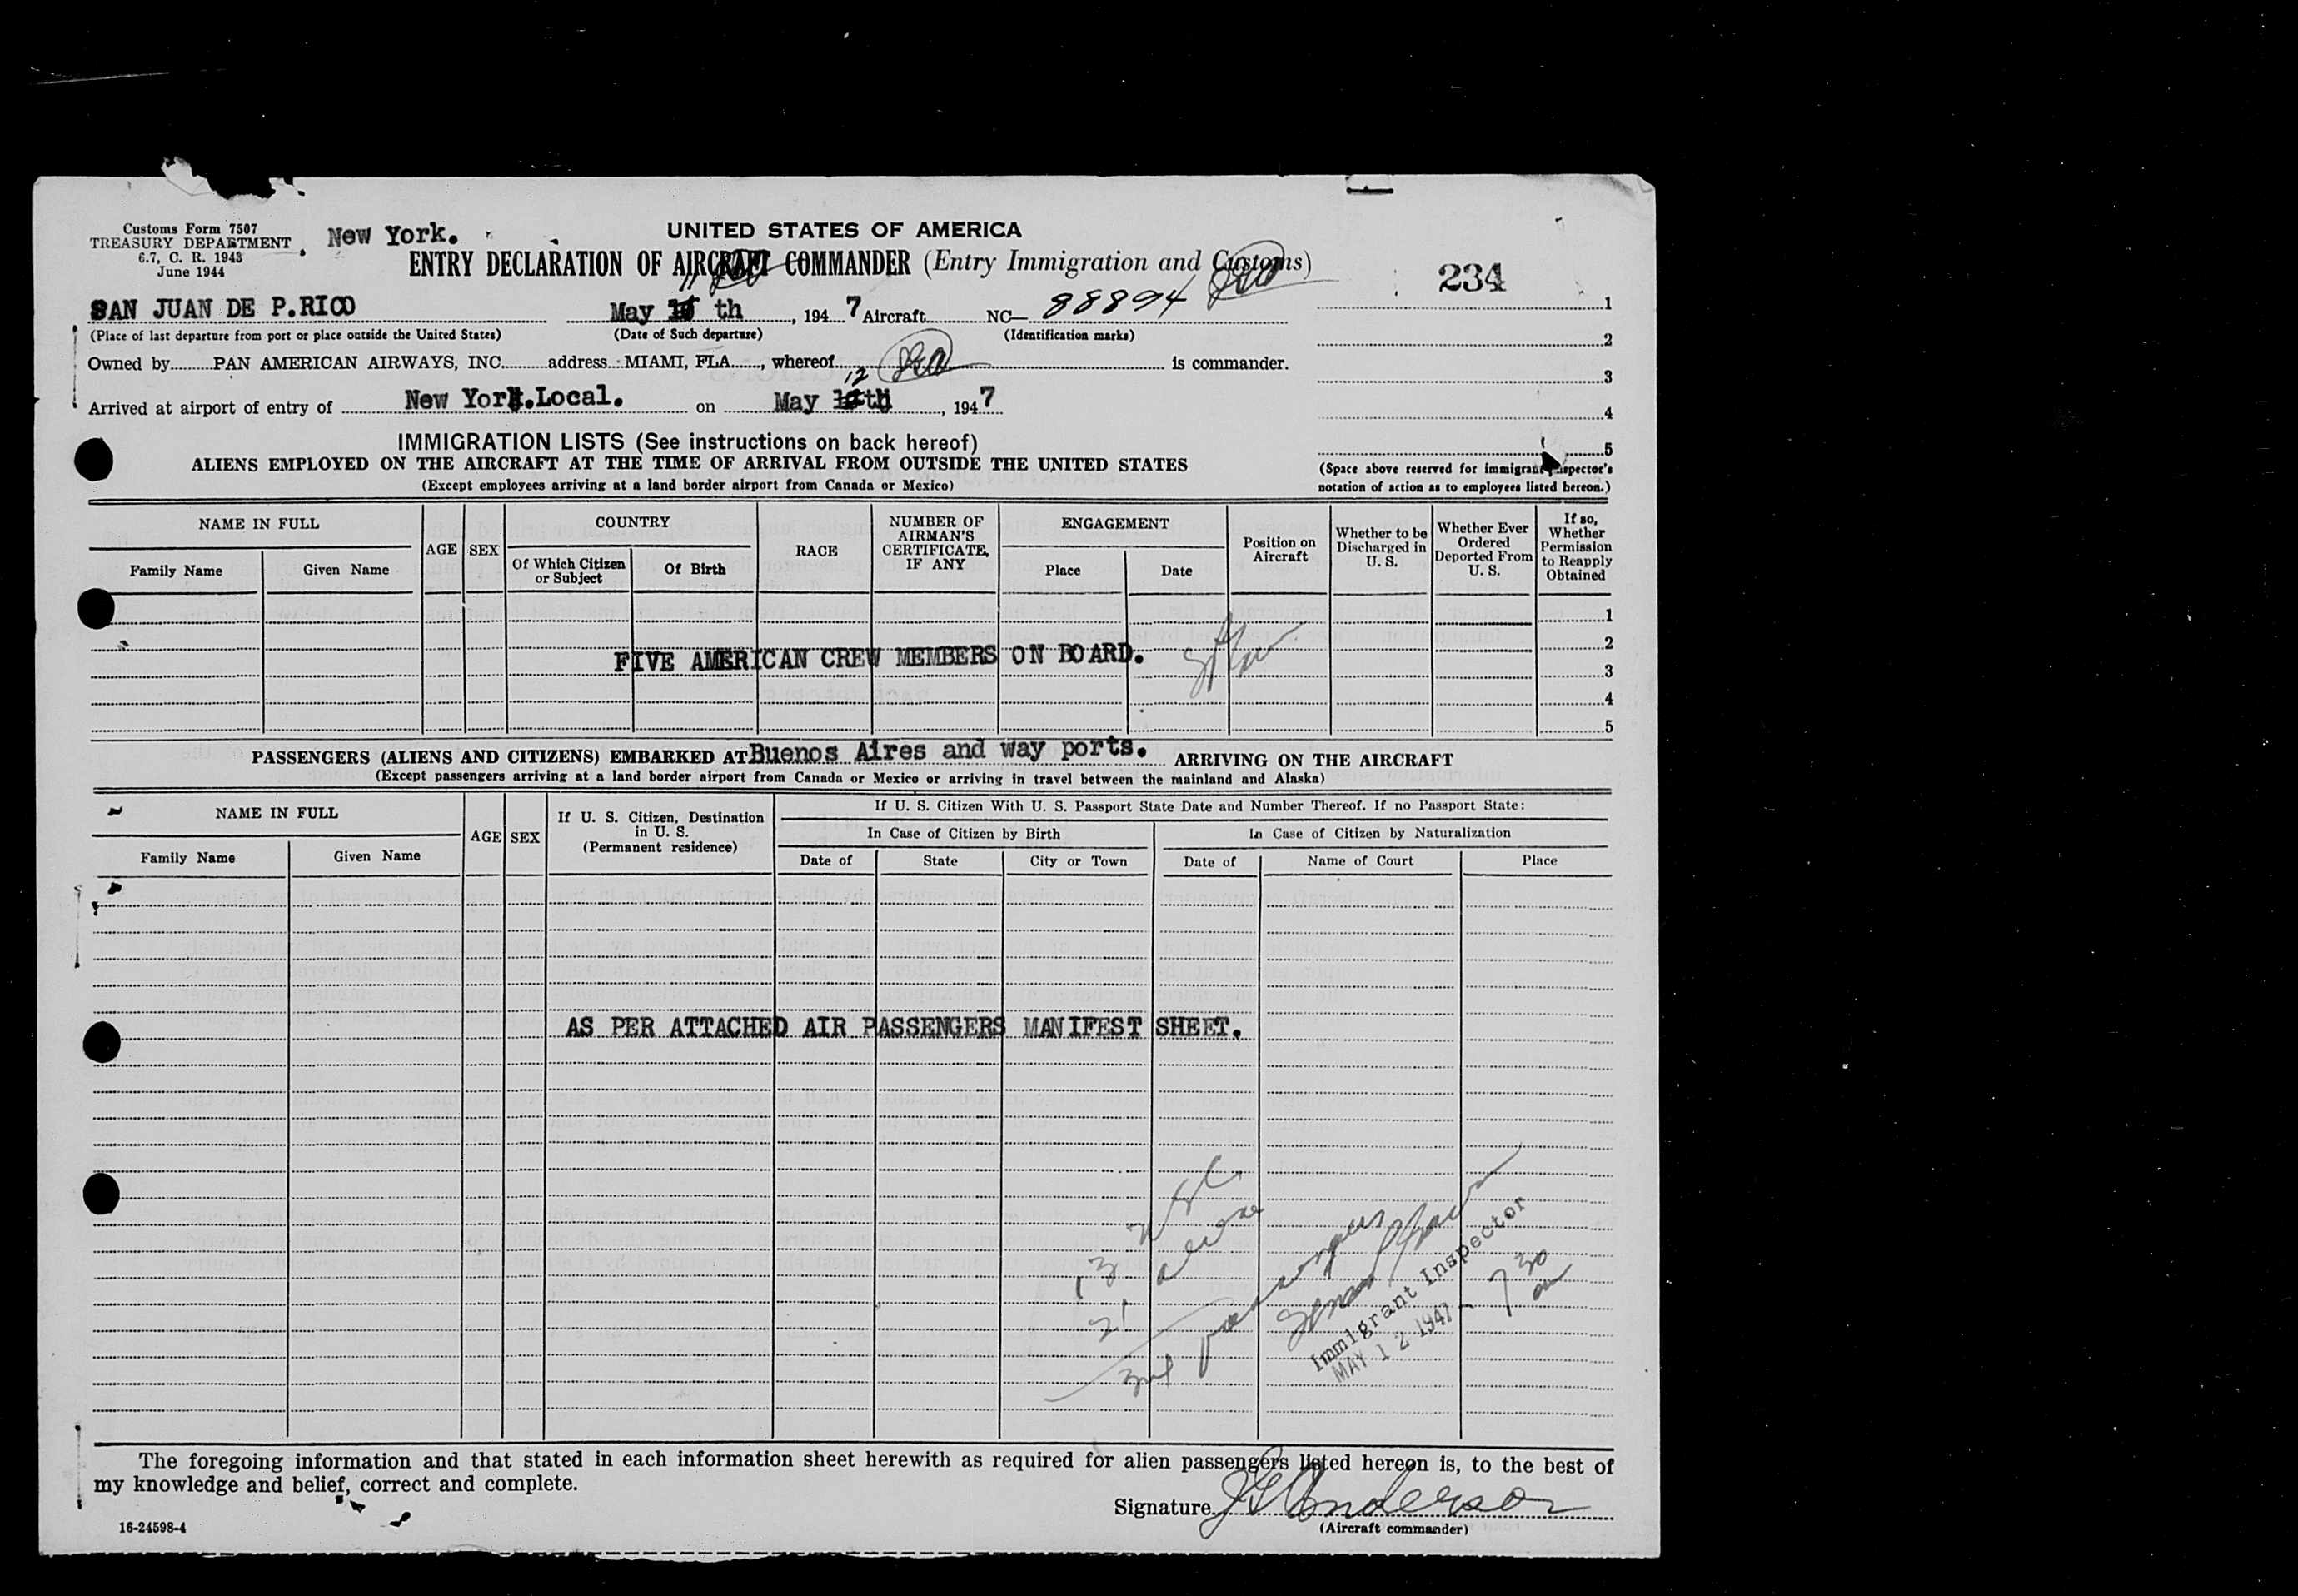 Customs Form 7507
TREASURY DEPARTMENT
6.7, C. R. 1943
June 1944
New York.
UNITED STATES OF AMERICA
ENTRY DECLARATION OF AIRCRAFT COMMANDER (Entry Immigration and Customs)
234
SAN JUAN DE P.RICO May 11 th, 1947 Aircraft NC— 88894
(Place of last departure from port or place outside the United States) (Date of Such departure) (Identification marks)
Owned by PAN AMERICAN AIRWAYS, INC. address MIAMI, FLA., whereof is commander.
Arrived at airport of entry of New York.Local. on May 12 th, 1947
1
2
3
4
5
(Space above reserved for immigrant inspector's
notation of action as to employees listed hereon.)
IMMIGRATION LISTS (See instructions on back hereof)
ALIENS EMPLOYED ON THE AIRCRAFT AT THE TIME OF ARRIVAL FROM OUTSIDE THE UNITED STATES
(Except employees arriving at a land border airport from Canada or Mexico)
NAME IN FULL
Family Name
Given Name
AGE
SEX
COUNTRY
Of Which Citizen or Subject
Of Birth
RACE
NUMBER OF AIRMAN'S CERTIFICATE, IF ANY
ENGAGEMENT
Place
Date
Position on Aircraft
Whether to be Discharged in U. S.
Whether Ever Ordered Deported From U. S.
If so, Whether Permission to Reapply Obtained
1
2
FIVE AMERICAN CREW MEMBERS ON BOARD.
3
4
5
PASSENGERS (ALIENS AND CITIZENS) EMBARKED AT Buenos Aires and way ports. ARRIVING ON THE AIRCRAFT
(Except passengers arriving at a land border airport from Canada or Mexico or arriving in travel between the mainland and Alaska)
NAME IN FULL
Family Name
Given Name
AGE
SEX
If U. S. Citizen, Destination in U. S. (Permanent residence)
If U. S. Citizen With U. S. Passport State Date and Number Thereof. If no Passport State:
In Case of Citizen by Birth
Date of
State
City or Town
In Case of Citizen by Naturalization
Date of
Name of Court
Place
AS PER ATTACHED AIR PASSENGERS MANIFEST SHEET.
13 USC
21 aliens
34 passengers
Immigrant Inspector
MAY 12 1947 - 7 30 am
The foregoing information and that stated in each information sheet herewith as required for alien passengers listed hereon is, to the best of
my knowledge and belief, correct and complete.
Signature J Anderson
(Aircraft commander)
16-24598-4